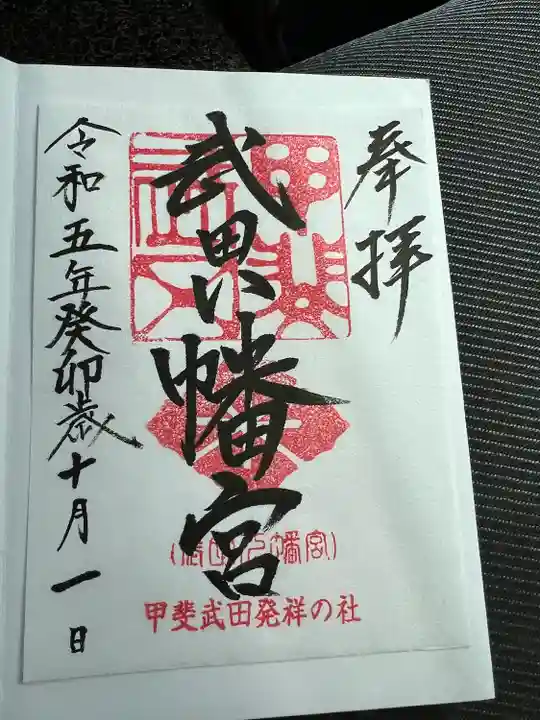 奉拝
武田八幡宮
令和五年癸卯歳十月一日
甲斐武田発祥の社